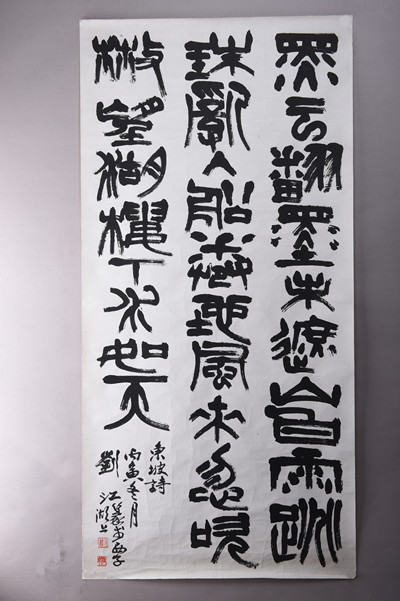 黑云翻墨未遮山白雨跳
珠亂入船卷地風来忽吹
散望湖樓下水如天
東坡詩
丙寅冬月
劉江篆於西子
湖上